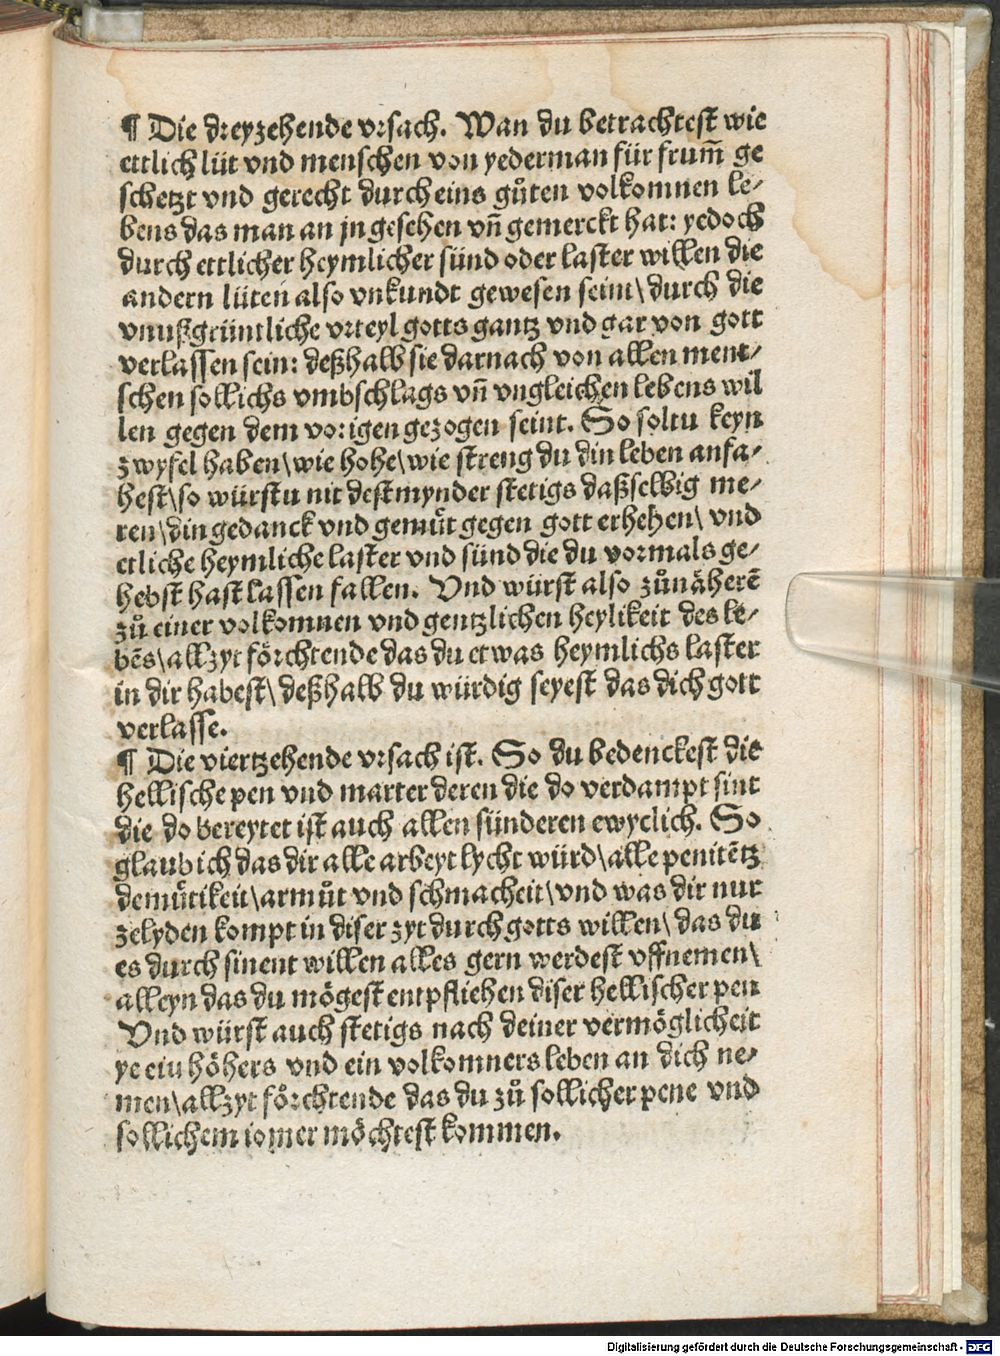 ¶ Die dreyzehende vrsach. Wan du betrachtest wie
ettlich lüt vnd menschen von yederman für frum̄ ge
schetzt vnd gerecht durch eins gůten volkomnen le⸗
bens das man an jn gesehen vn̄ gemerckt hat: yedoch
durch ettlicher heymlicher sünd oder laster willen die
andern lüten also vnkundt gewesen seint\ durch die
vnußgrüntliche vrteyl gotts gantz vnd gar von gott
verlassen sein: deßhalb sie darnach von allen ment⸗
schen sollichs vmbschlags vn̄ vngleichen lebens wil
len gegen dem vorigen gezogen seint. So soltu keyn
zwyfel haben\ wie hohe\ wie streng du din leben anfa⸗
hest\ so würstu nit destmynder stetigs daßselbig me⸗
ren\ din gedanck vnd gemuͤt gegen gott erhehen\ vnd
etliche heymliche laster vnd sünd die du vormals ge⸗
hebst hast lassen fallen. Vnd würst also zůnäherē
zů einer volkomnen vnd gentzlichen heylikeit des le⸗
bēs\ allzyt foͤrchtende das du etwas heymlichs laster
in dir habest\ deßhalb du würdig seyest das dich gott
verlasse.
¶ Die viertzehende vrsach ist. So du bedenckest die
hellische pen vnd marter deren die do verdampt sint
die do bereytet ist auch allen sünderen ewyclich. So
glaub ich das dir alle arbeyt lycht würd\ alle penitētz
demuͤtikeit\ armůt vnd schmacheit\ vnd was dir nur
zelyden kompt in diser zyt durch gotts willen\ das du
es durch sinent willen alles gern werdest vffnemen\
alleyn das du mögest entpfliehen diser hellischer pen
Vnd würst auch stetigs nach deiner vermöglicheit
ye ein höhers vnd ein volkomners leben an dich ne⸗
men\ allzyt foͤrchtende das du zů sollicher pene vnd
sollichem iomer möchtest kommen.
Digitalisierung gefördert durch die Deutsche Forschungsgemeinschaft - DFG